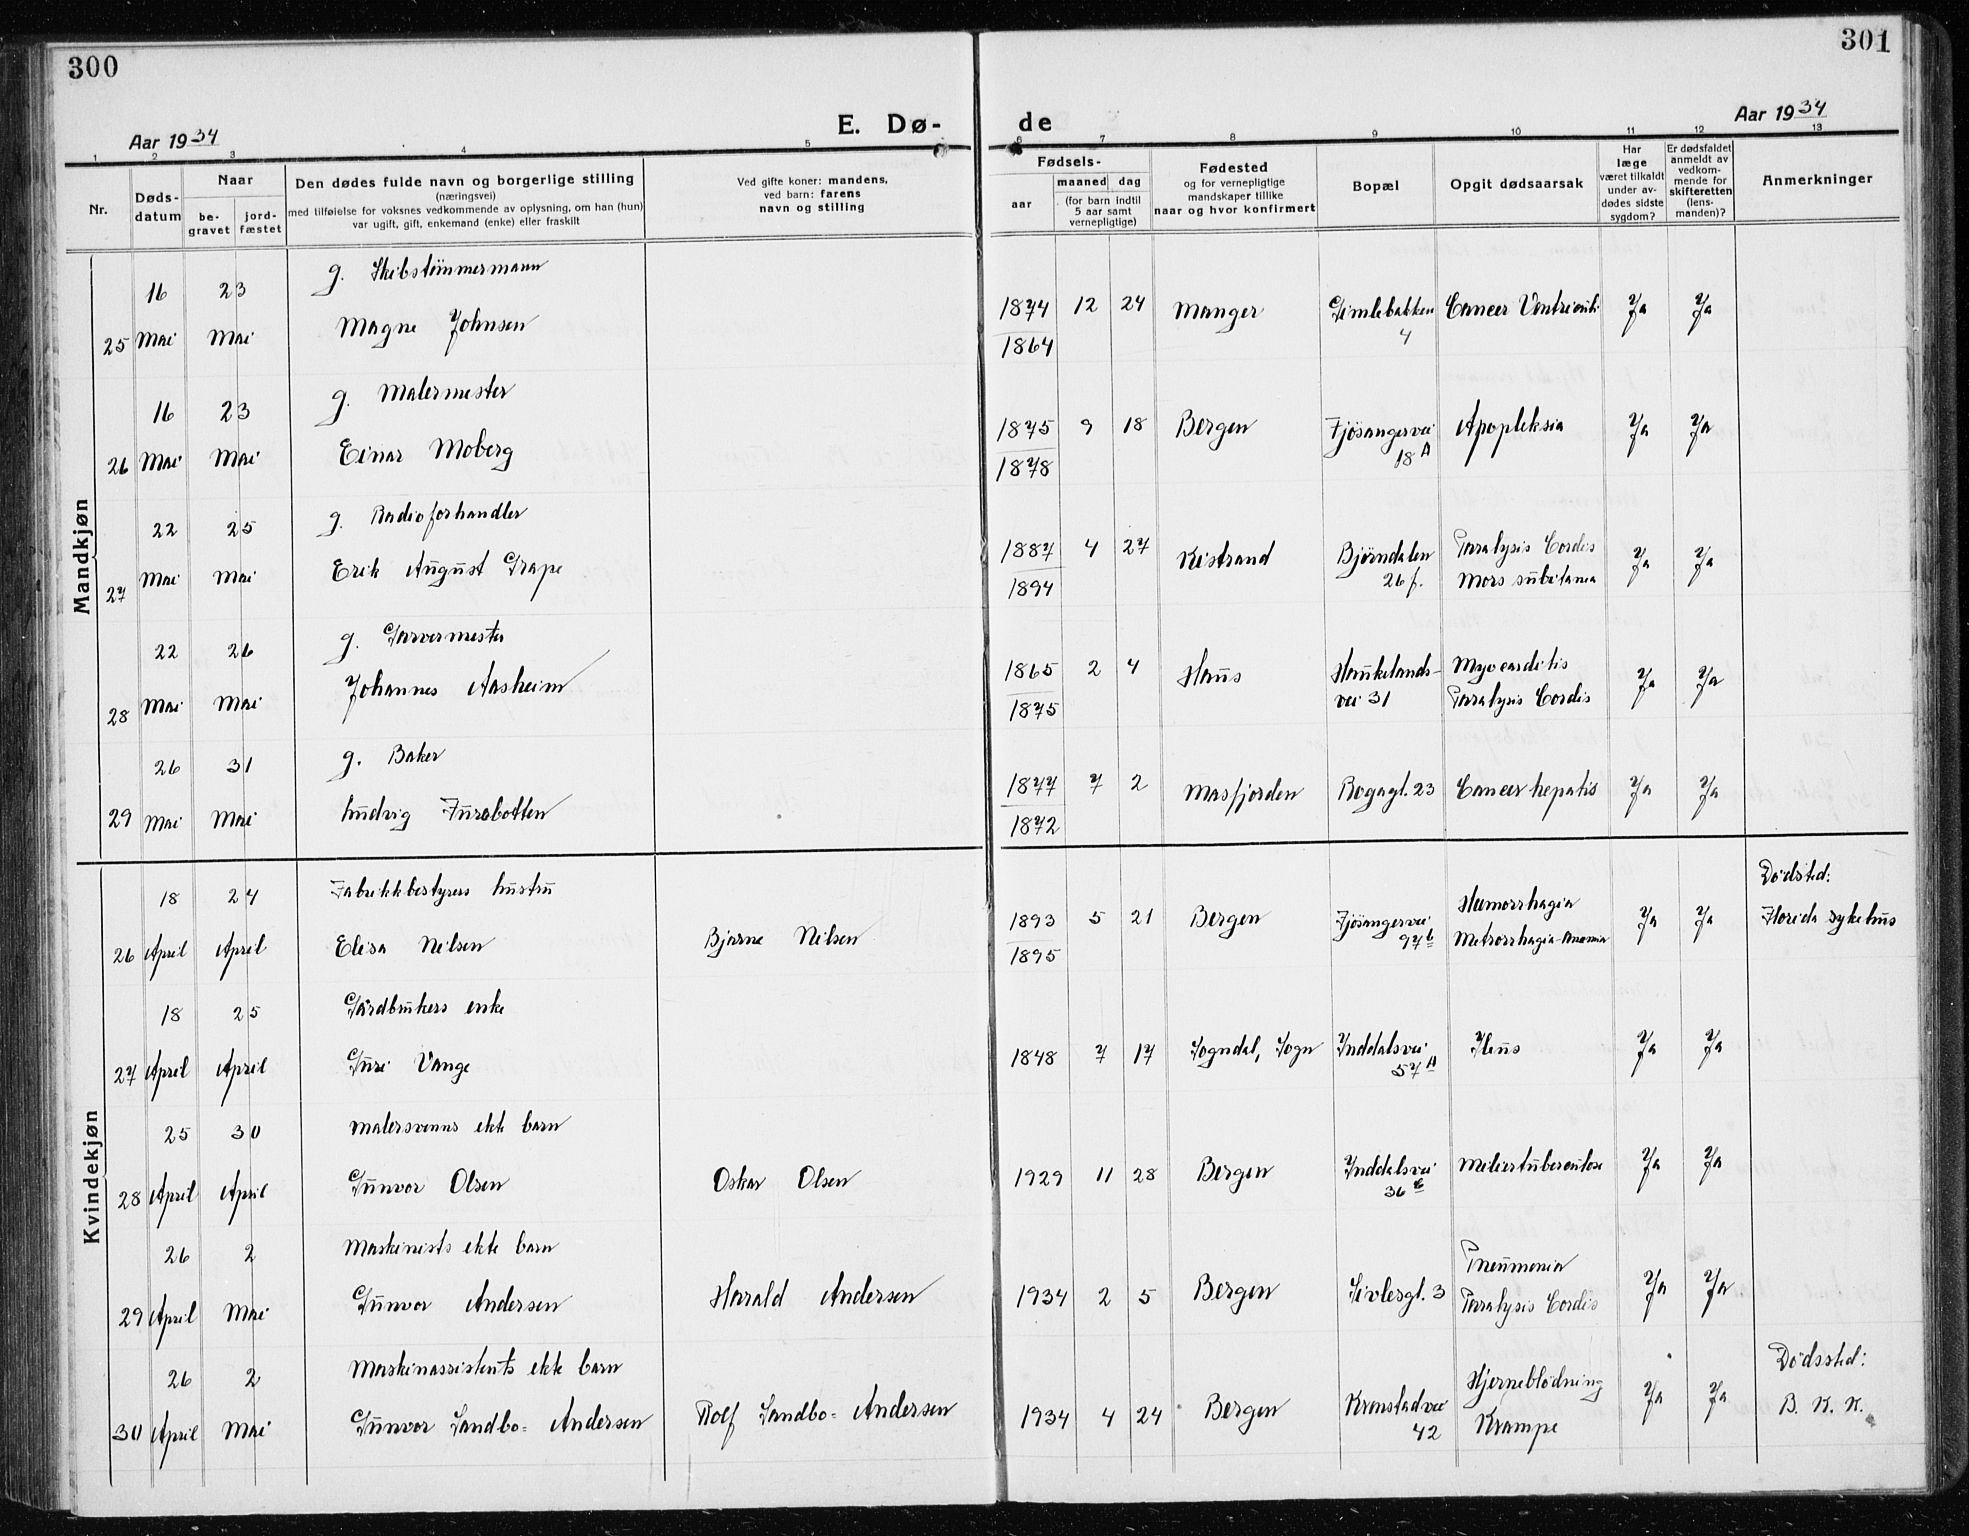 300
301
Aar 1934
E. Dø-
de
Aar 1934
1 2 3 4 5 6 7 8 9 10 11 12 13
Nr.
Døds-
datum
Naar
be-
gravet
jord-
fæstet
Den dødes fulde navn og borgerlige stilling
(næringsvei)
med tilføielse for voksnes vedkommende av oplysning, om han (hun)
var ugift, gift, enkemand (enke) eller fraskilt
Ved gifte koner: mandens,
ved barn: farens
navn og stilling
Fødsels-
aar
maaned dag
(for barn indtil
5 aar samt
vernepligtige)
Fødested
og for vernepligtige
mandskaper tillike
naar og hvor konfirmert
Bopæl
Opgit dødsaarsak
Har
læge
været tilkaldt
under av-
dødes sidste
sygdom?
Er dødsfaldet
anmeldt av
vedkom-
mende for
skifteretten
(lens-
manden)?
Anmerkninger
Mandkjøn
16 23 g. Skibstømmermann
25 Mai Mai Magne Johnsen
1874 12 24 Manger Gimlebakken Cancer Ventriculi Ja Ja
1864 4
16 23 g. Malermester
26 Mai Mai Einar Moberg
1875 9 18 Bergen Fjösangervei Apopleksia Ja Ja
1878 18 A
22 25 g. Radioforhandler
27 Mai Mai Erik August Grape
1887 4 27 Kistrand Björndalen Paralysis Cordis Ja Ja
1894 26 f. Mors subitanea
22 26 g. Garvermester
28 Mai Mai Johannes Aasheim
1865 2 4 Haus Haukelands- Myocarditis Ja Ja
1875 vei 31 Paralysis Cordis
26 31 g. Baker
29 Mai Mai Ludvig Furebotten
1877 7 2 Masfjorden Bogagt. 23 Cancer hepatis Ja Ja
1872
Kvindekjøn
18 24 Fabrikkbestyrers hustru
26 April April Elisa Nilsen Bjarne Nilsen
1893 5 21 Bergen Fjösangervei Hæmorrhagia Ja Ja Dödsted:
1895 97 b Metrorrhagia-Anæmia Florida sykehus
18 25 Gårdbrukers enke
27 April April Guri Vange
1848 7 17 Sogndal, Sogn Inddalsvei Ileus Ja Ja
57 A
25 30 malersvenns ekte barn
28 April April Gunvor Olsen Oskar Olsen
1929 11 28 Bergen Inddalsvei Miliertuberculose Ja Ja
36
26 2 Maskinists ekte barn
29 April Mai Gunvor Andersen Harald Andersen
1934 2 5 Bergen Sivlesgt. 3 Pneumonia Ja Ja
Paralysis Cordis
26 2 Maskinassistents ekte barn
30 April Mai Gunvor Sandbo=Andersen Rolf Sandbo=Andersen
1934 4 24 Bergen Kronstadvei Hjerneblödning Ja Ja Dödssted:
42 Krampe B. K. K.